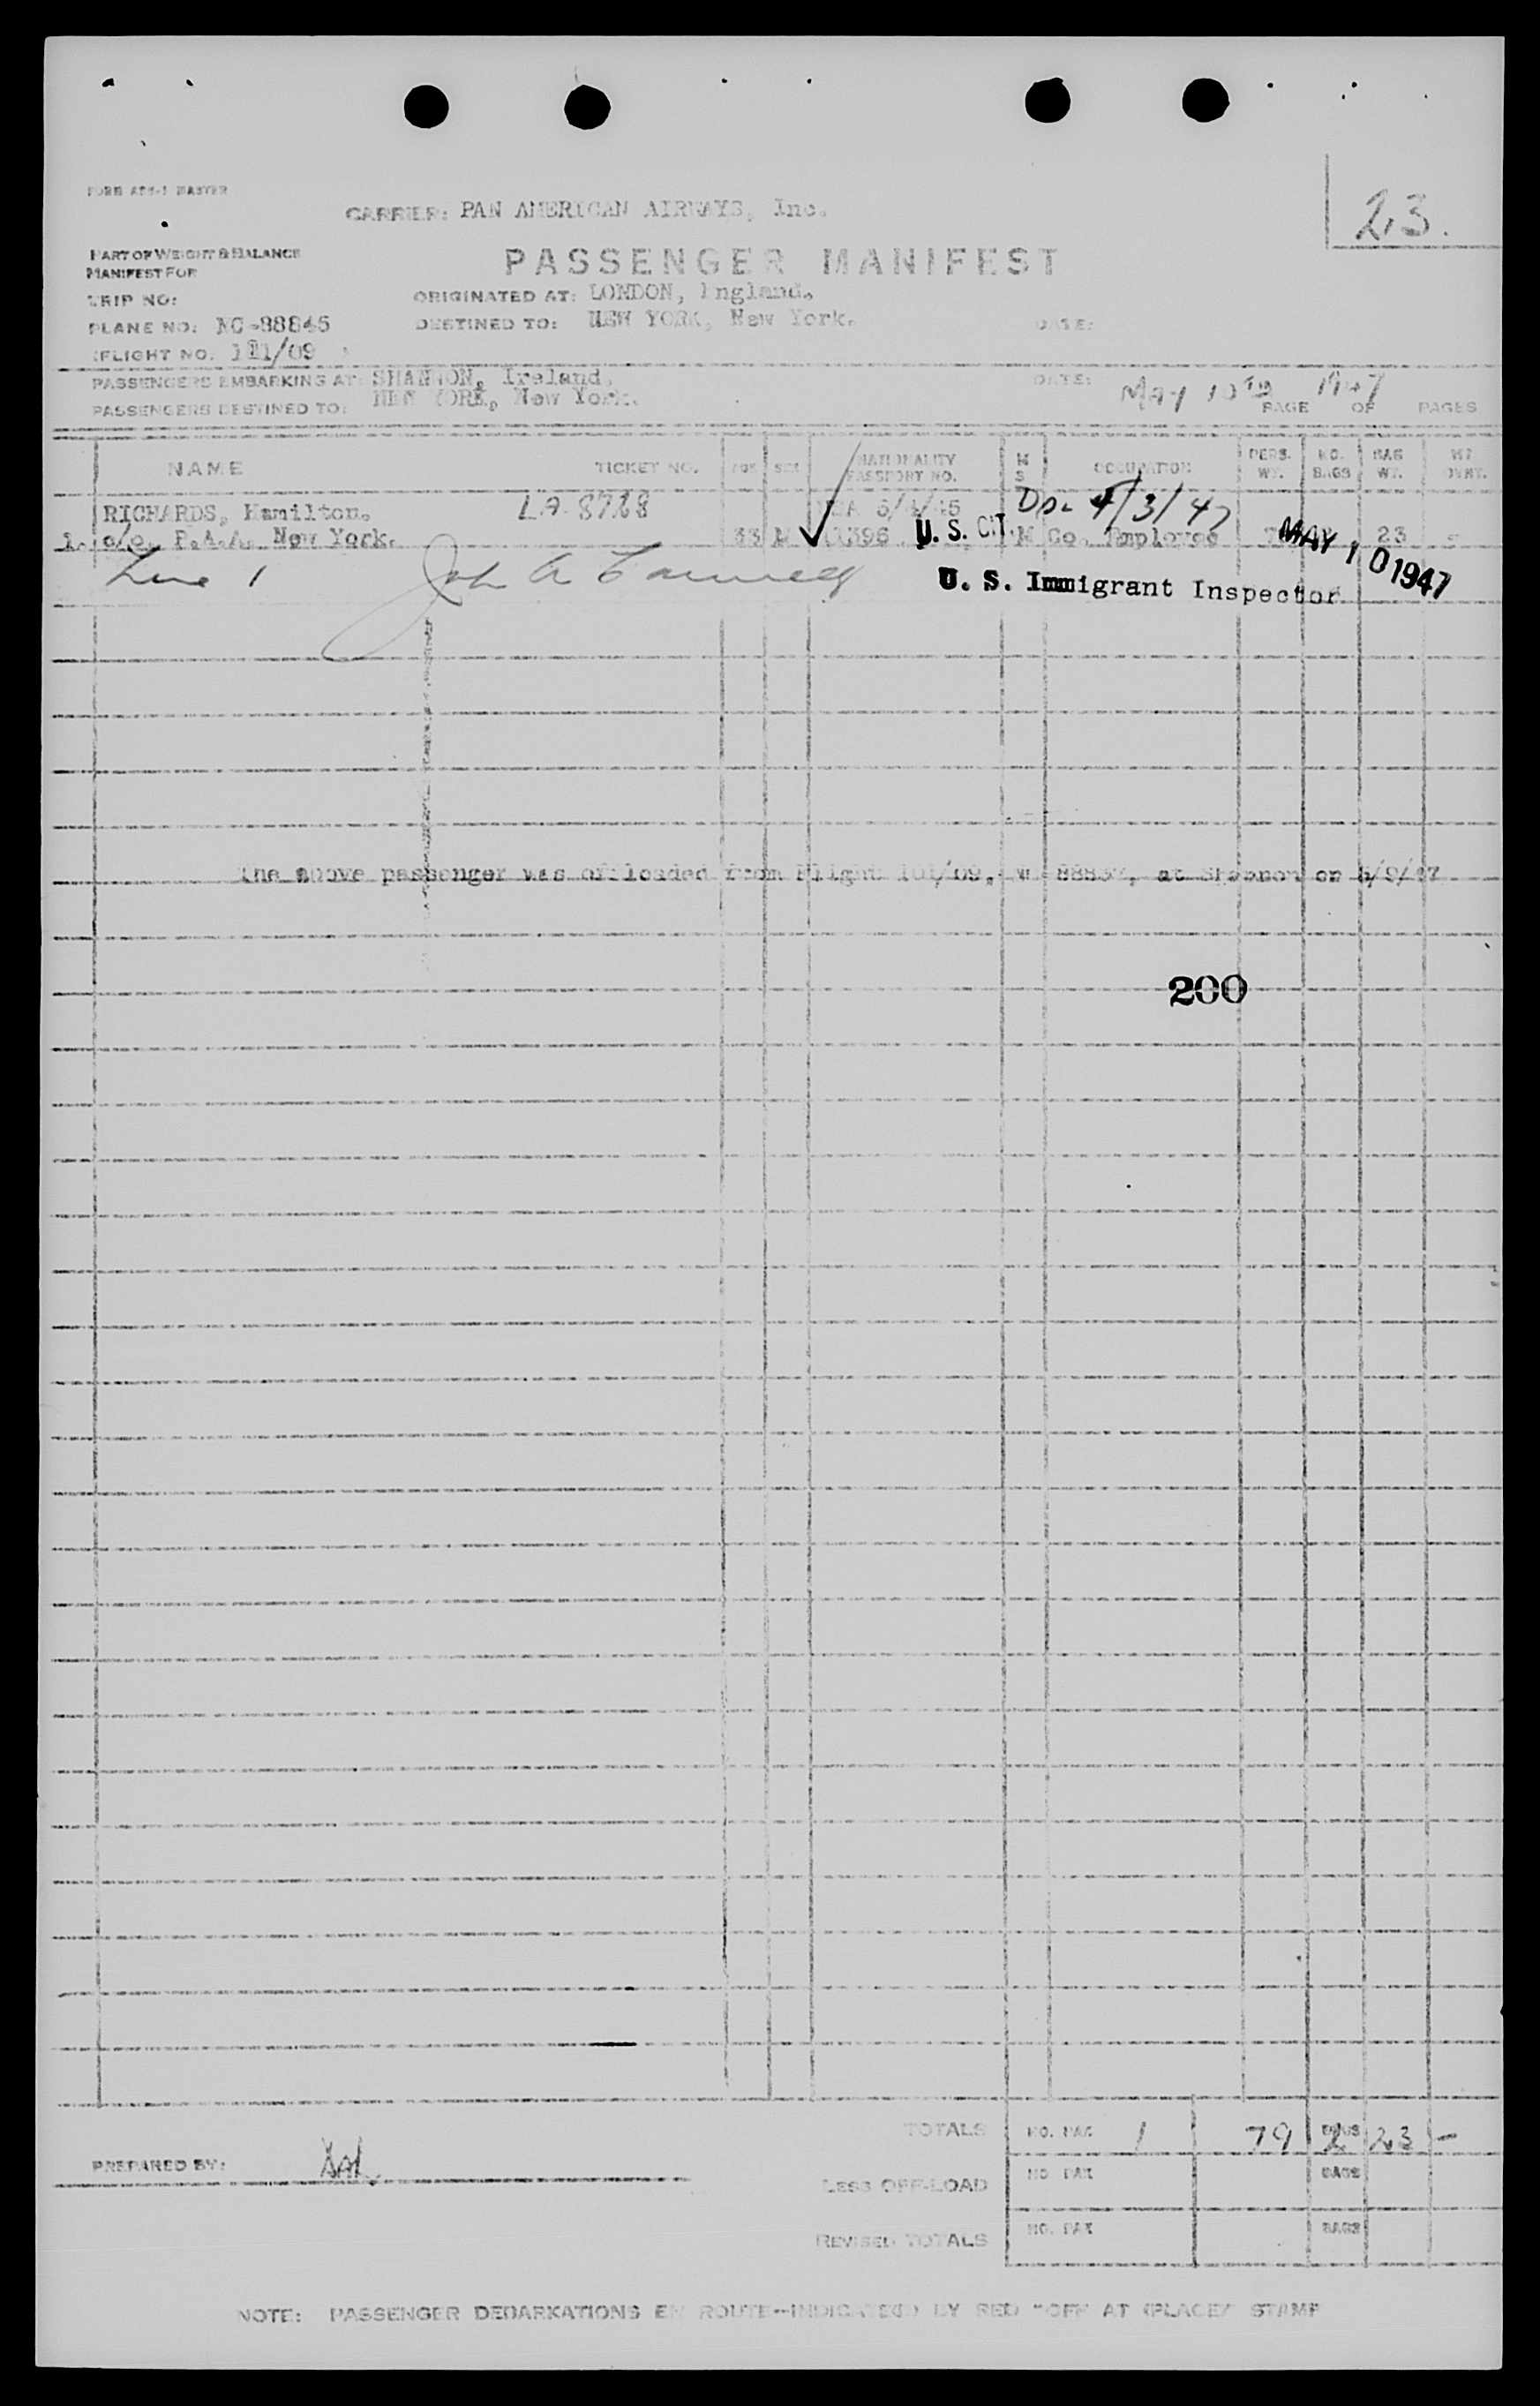 FORM ATS-1 MASTER
CARRIER: PAN AMERICAN AIRWAYS, Inc.
23.
PART OF WEIGHT & BALANCE
MANIFEST FOR
PASSENGER MANIFEST
TRIP NO:
ORIGINATED AT: LONDON, England.
PLANE NO: NC-88845
DESTINED TO: NEW YORK, New York.
DATE:
FLIGHT NO. 121/09
PASSENGERS EMBARKING AT: SHANNON, Ireland.
DATE: May 10th 1947
PASSENGERS DESTINED TO: NEW YORK, New York.
PAGE OF PAGES
NAME TICKET NO. AGE SEX NATIONALITY PASSPORT NO. M S OCCUPATION PERS. WT. NO. BAGS BAG WT.
RICHARDS, Hamilton. LA 8728 Dp. 4/3/47
1. c/o. P.A.A. New York. 33 M U. S. CIT. M Co. Employee 23 -
MAY 10 1947
Line 1
U. S. Immigrant Inspector
The above passenger was offloaded from Flight 101/09, at Shannon on 5/9/47
200
TOTALS NO. PAX 1 79 BAGS 2 23 -
PREPARED BY:
LESS OFF-LOAD NO. PAX BAGS
REVISED TOTALS NO. PAX BAGS
NOTE: PASSENGER DEBARKATIONS EN ROUTE--INDICATED BY RED "OFF AT (PLACE)" STAMP